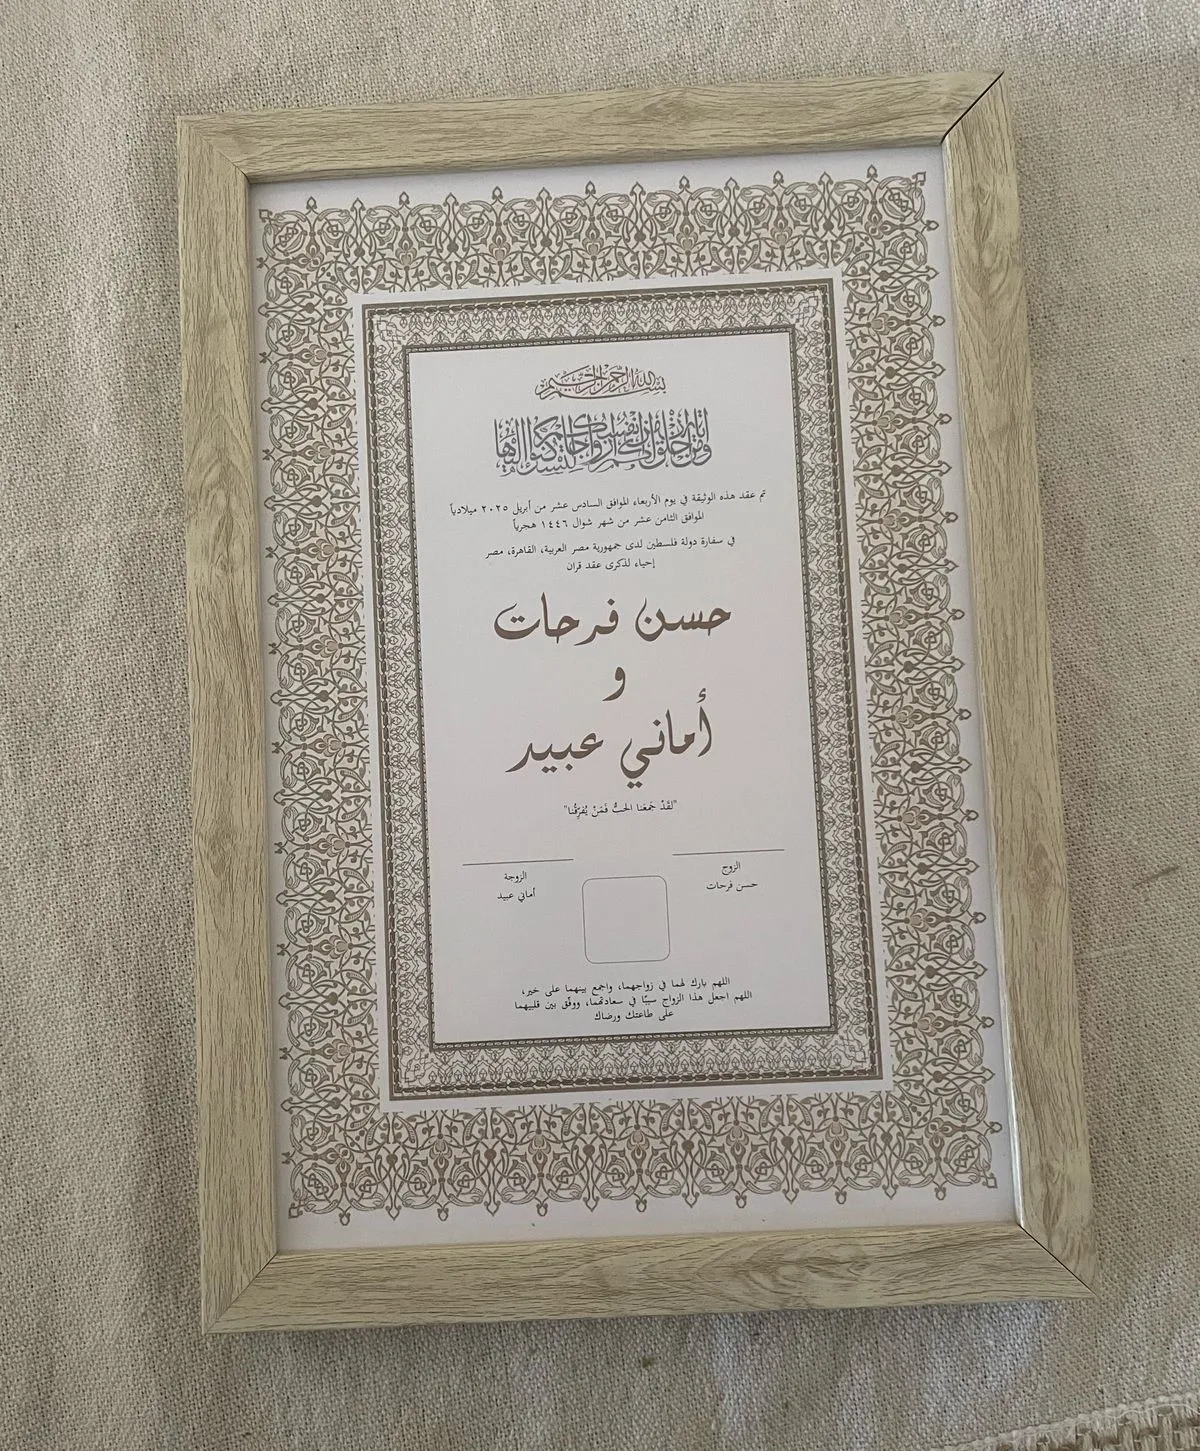 بسم الله الرحمن الرحيم
ومن آياته أن خلق لكم من أنفسكم أزواجا لتسكنوا إليها
تم عقد هذه الوثيقة في يوم الأربعاء الموافق السادس عشر من أبريل ٢٠٢٥ ميلادياً
الموافق الثامن عشر من شهر شوال ١٤٤٦ هجرياً
في سفارة دولة فلسطين لدى جمهورية مصر العربية، القاهرة، مصر
إحياء لذكرى عقد قران
حسن فرحات
و
أماني عبيد
"لَقَدْ جَمَعَنا الحُبُّ فَمَنْ يُفَرِّقُنا"
الزوج
حسن فرحات
الزوجة
أماني عبيد
اللهم بارك لهما في زواجهما، واجمع بينهما على خير،
اللهم اجعل هذا الزواج سببًا في سعادتهما، ووفّق بين قلبيهما
على طاعتك ورضاك